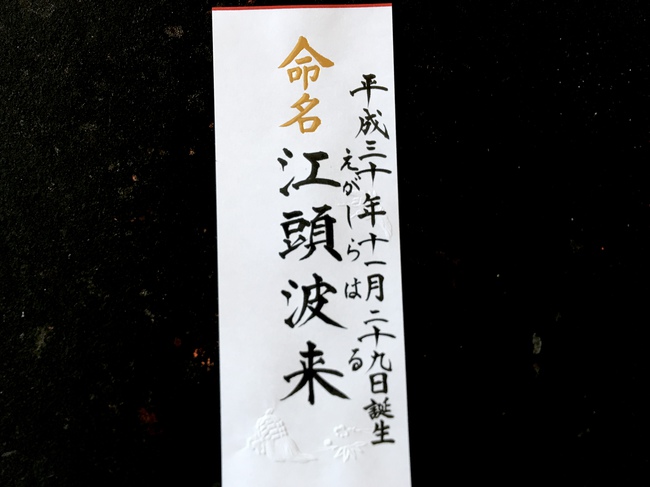 平成三十年十一月二十九日誕生
えがしら はる
命名
江頭波来